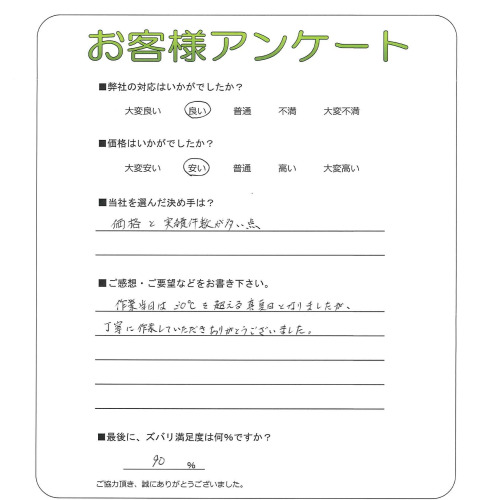 お客様アンケート
■弊社の対応はいかがでしたか？
大変良い 良い 普通 不満 大変不満
■価格はいかがでしたか？
大変安い 安い 普通 高い 大変高い
■当社を選んだ決め手は？
価格と実績件数が多い点
■ご感想・ご要望などをお書き下さい。
作業当日は30℃を超える真夏日となりましたが、
丁寧に作業していただきありがとうございました。
■最後に、ズバリ満足度は何%ですか？
90 %
ご協力頂き、誠にありがとうございました。